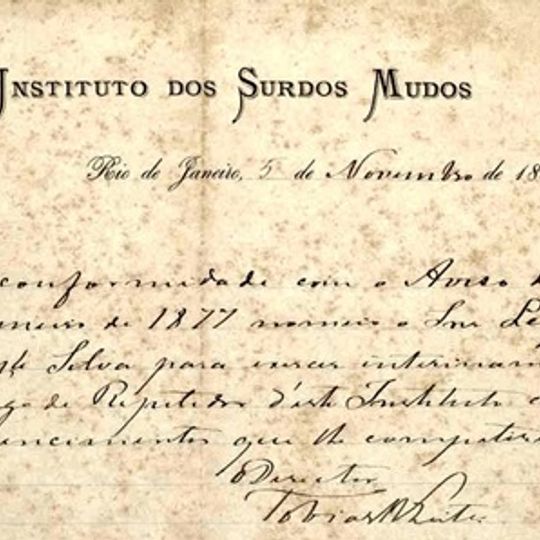 Instituto dos Surdos Mudos
Rio de Janeiro, 5 de Novembro de 18
conformidade com o Aviso d
neiro de 1877 nomeio o Snr Le
Silva para exercer interinam
go de Repetidor d'este Instituto
encimentos que lhe competir
O Director
Tobias Leite